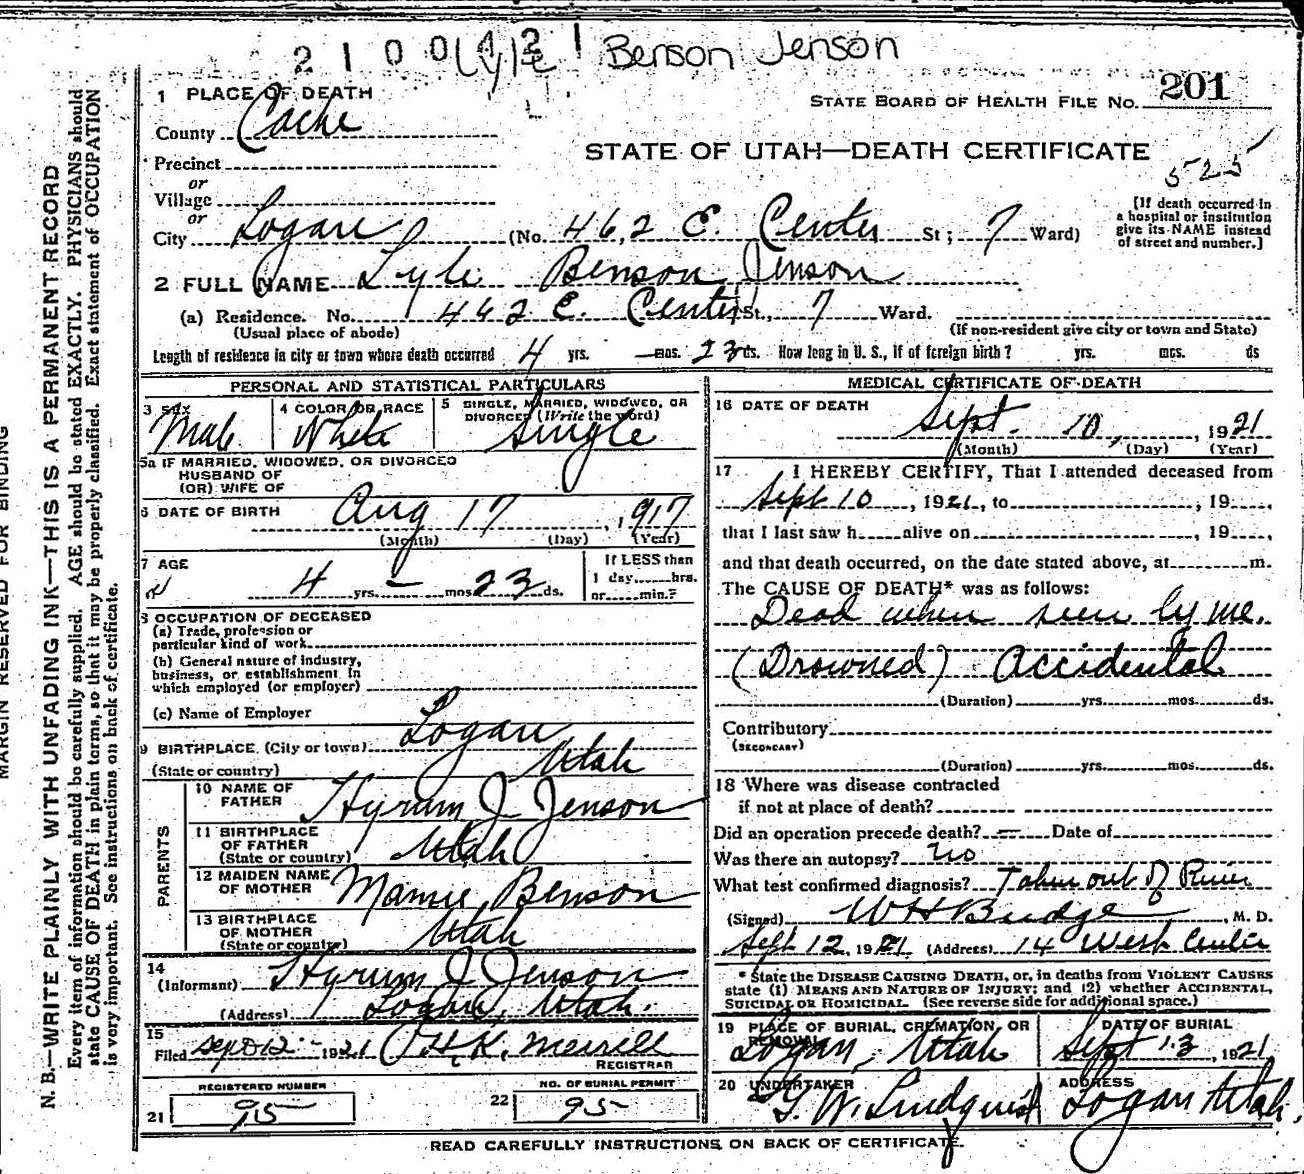 2 1 0 0 4 2 1
Lyle Benson Jenson
1 PLACE OF DEATH
STATE BOARD OF HEALTH FILE NO. 201
County Cache
STATE OF UTAH—DEATH CERTIFICATE
525
Precinct
or
Village
or
City Logan (No. 462 E. Center St; 7 Ward)
[If death occurred in
a hospital or institution
give its NAME instead
of street and number.]
2 FULL NAME Lyle Benson Jenson
(a) Residence. No. 462 E. Center St., 7 Ward.
(Usual place of abode) (If non-resident give city or town and State)
Length of residence in city or town where death occurred 4 yrs. — mos. 23 ds. How long in U. S., if of foreign birth? yrs. mos. ds
PERSONAL AND STATISTICAL PARTICULARS
3 SEX Male
4 COLOR OR RACE White
5 SINGLE, MARRIED, WIDOWED, OR
DIVORCED (Write the word)
Single
5a IF MARRIED, WIDOWED, OR DIVORCED
HUSBAND OF
(OR) WIFE OF
6 DATE OF BIRTH Aug 17, 1917
(Month) (Day) (Year)
7 AGE
4 yrs. — mos 23 ds.
If LESS than
1 day hrs.
or min.?
8 OCCUPATION OF DECEASED
(a) Trade, profession or
particular kind of work
(b) General nature of industry,
business, or establishment in
which employed (or employer)
(c) Name of Employer
9 BIRTHPLACE (City or town) Logan
(State or country) Utah
PARENTS
10 NAME OF
FATHER Hyrum J Jenson
11 BIRTHPLACE
OF FATHER
(State or country) Utah
12 MAIDEN NAME
OF MOTHER Mamie Benson
13 BIRTHPLACE
OF MOTHER
(State or country) Utah
14
(Informant) Hyrum J Jenson
(Address) Logan, Utah.
15
Filed Sept 12 - 1921 H. K. Merrill
REGISTRAR
REGISTERED NUMBER
21 95
NO. OF BURIAL PERMIT
22 95
MEDICAL CERTIFICATE OF DEATH
16 DATE OF DEATH
Sept. 10, , 1921
(Month) (Day) (Year)
17 I HEREBY CERTIFY, That I attended deceased from
Sept 10, 1921, to , 19
that I last saw h alive on , 19 ,
and that death occurred, on the date stated above, at m.
The CAUSE OF DEATH* was as follows:
Dead when seen by me.
(Drowned) Accidental
(Duration) yrs. mos. ds.
Contributory
(SECONDARY)
(Duration) yrs. mos. ds.
18 Where was disease contracted
if not at place of death?
Did an operation precede death? — Date of
Was there an autopsy? No
What test confirmed diagnosis? Taken out of River
(Signed) W H Budge, M. D.
Sept 12, 1921. (Address) 14 West Center
* State the DISEASE CAUSING DEATH, or, in deaths from VIOLENT CAUSES
state (1) MEANS AND NATURE OF INJURY; and (2) whether ACCIDENTAL,
SUICIDAL OR HOMICIDAL. (See reverse side for additional space.)
19 PLACE OF BURIAL, CREMATION, OR
REMOVAL
Logan, Utah
DATE OF BURIAL
Sept 13, 1921
20 UNDERTAKER
G. W. Lindquist
ADDRESS
Logan Utah.
READ CAREFULLY INSTRUCTIONS ON BACK OF CERTIFICATE.
MARGIN RESERVED FOR BINDING
N. B.—WRITE PLAINLY WITH UNFADING INK—THIS IS A PERMANENT RECORD
Every item of information should be carefully supplied. AGE should be stated EXACTLY. PHYSICIANS should
state CAUSE OF DEATH in plain terms, so that it may be properly classified. Exact statement of OCCUPATION
is very important. See instructions on back of certificate.